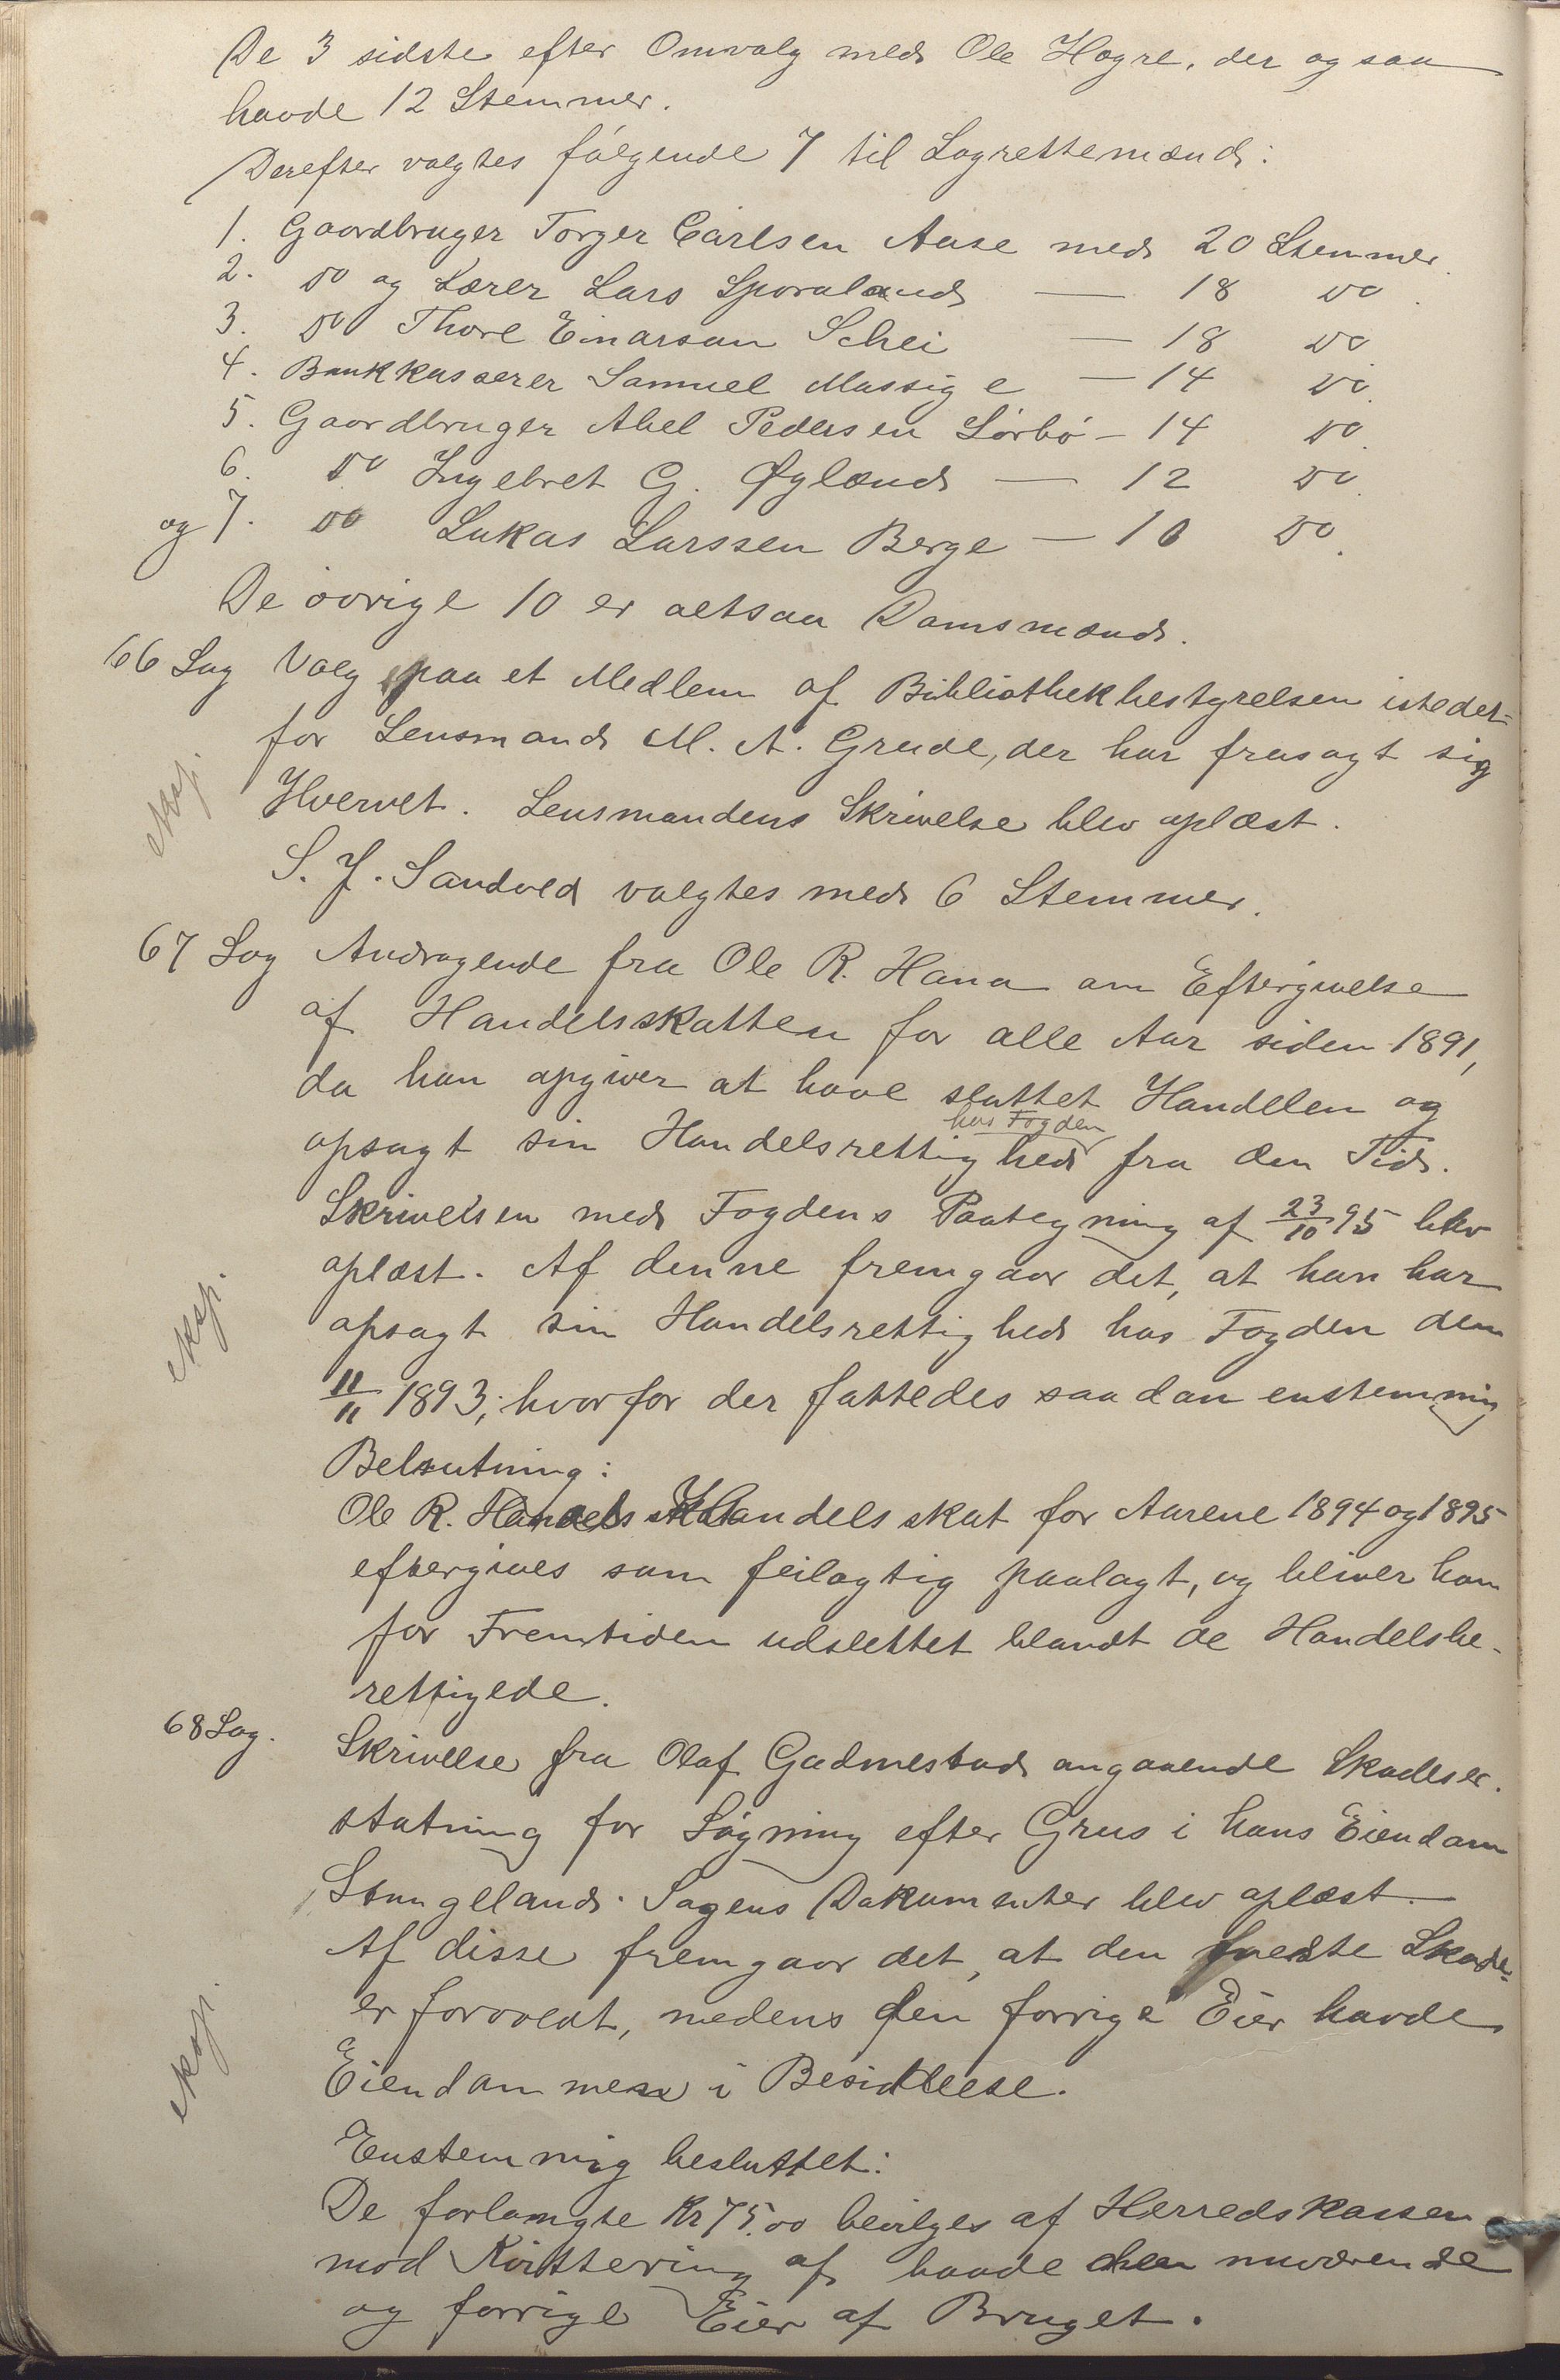 De 3 sidste efter Omvalg med Ole Hogre, der ogsaa
havde 12 Stemmer.
Derefter valgtes følgende 7 til Lagrettemænd:
1. Gaardbruger Torger Carlsen Aase med 20 Stemmer.
2. Do og Lærer Lars Sporaland — 18 Do.
3. Do Thore Einarsen Schei — 18 Do.
4. Bankkasserer Samuel Mossige — 14 Do.
5. Gaardbruger Abel Pedersen Sørbø — 14 Do.
6. Do Ingebret G. Øglænd — 12 Do.
og 7. Do Lukas Larssen Berge — 10 Do.
De øvrige 10 er altsaa Domsmænd.
66 Sag Valg paa et Medlem af Bibliothekbestyrelsen istedet=
for Lensmand M. A. Grude, der har frasagt sig
eksp.
Hvervet. Lensmandens Skrivelse blev oplæst.
S. J. Sandved valgtes med 6 Stemmer.
67 Sag Andragende fra Ole R. Hana om Eftergivelse
af Handelsskatten for alle Aar siden 1891,
da han opgiver at have sluttet Handelen og
hos Fogden
opsagt sin Handelsrettighed fra den Tid.
Skrivelsen med Fogdens Paategning af 23/10 95 blev
oplæst. Af denne fremgaar det, at han har
eksp.
opsagt sin Handelsrettighed hos Fogden den
11/11 1893; hvorfor der fattedes saadan enstemmig
Beslutning:
Ole R. Hanas Handelsskat for Aarene 1894 og 1895
eftergives som feilagtig paalagt, og bliver han
for Fremtiden udslettet blandt de Handelsbe-
rettigede.
68 Sag. Skrivelse fra Olaf Gudmestad angaaende Skadeser-
statning for Søgning efter Grus i hans Eiendom
Stangeland. Sagens Dokumenter blev oplæst.
Af disse fremgaar det, at den Skade
er forvoldt, medens den forrige Eier havde
eksp.
Eiendommen i Besiddelse.
Enstemmig besluttet:
De forlangte Kr 75.00 bevilges af Herredskassen
mod Kvittering af baade den nuværende
og forrige Eier af Bruget.